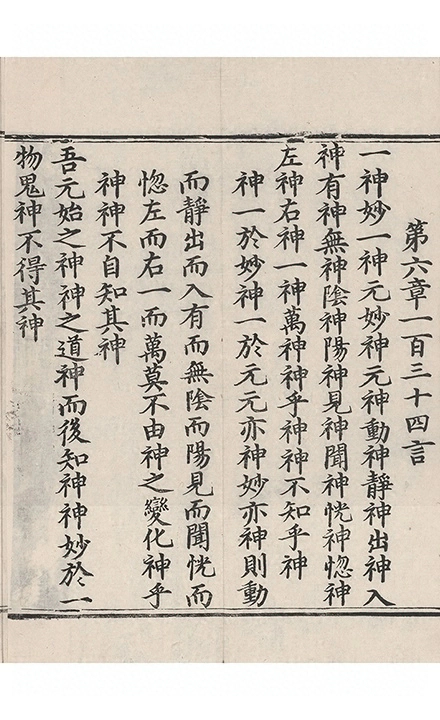 第六章一百三十四言
一神妙一神元妙神元神動神靜神出神入
神有神無神陰神陽神見神聞神恍神惚神
左神右神一神萬神神乎神神不知乎神
神一於妙神一於元元亦神妙亦神則動
而靜出而入有而無陰而陽見而聞恍而
惚左而右一而萬莫不由神之變化神乎
神神不自知其神
吾元始之神神之道神而後知神神妙於一
物鬼神不得其神